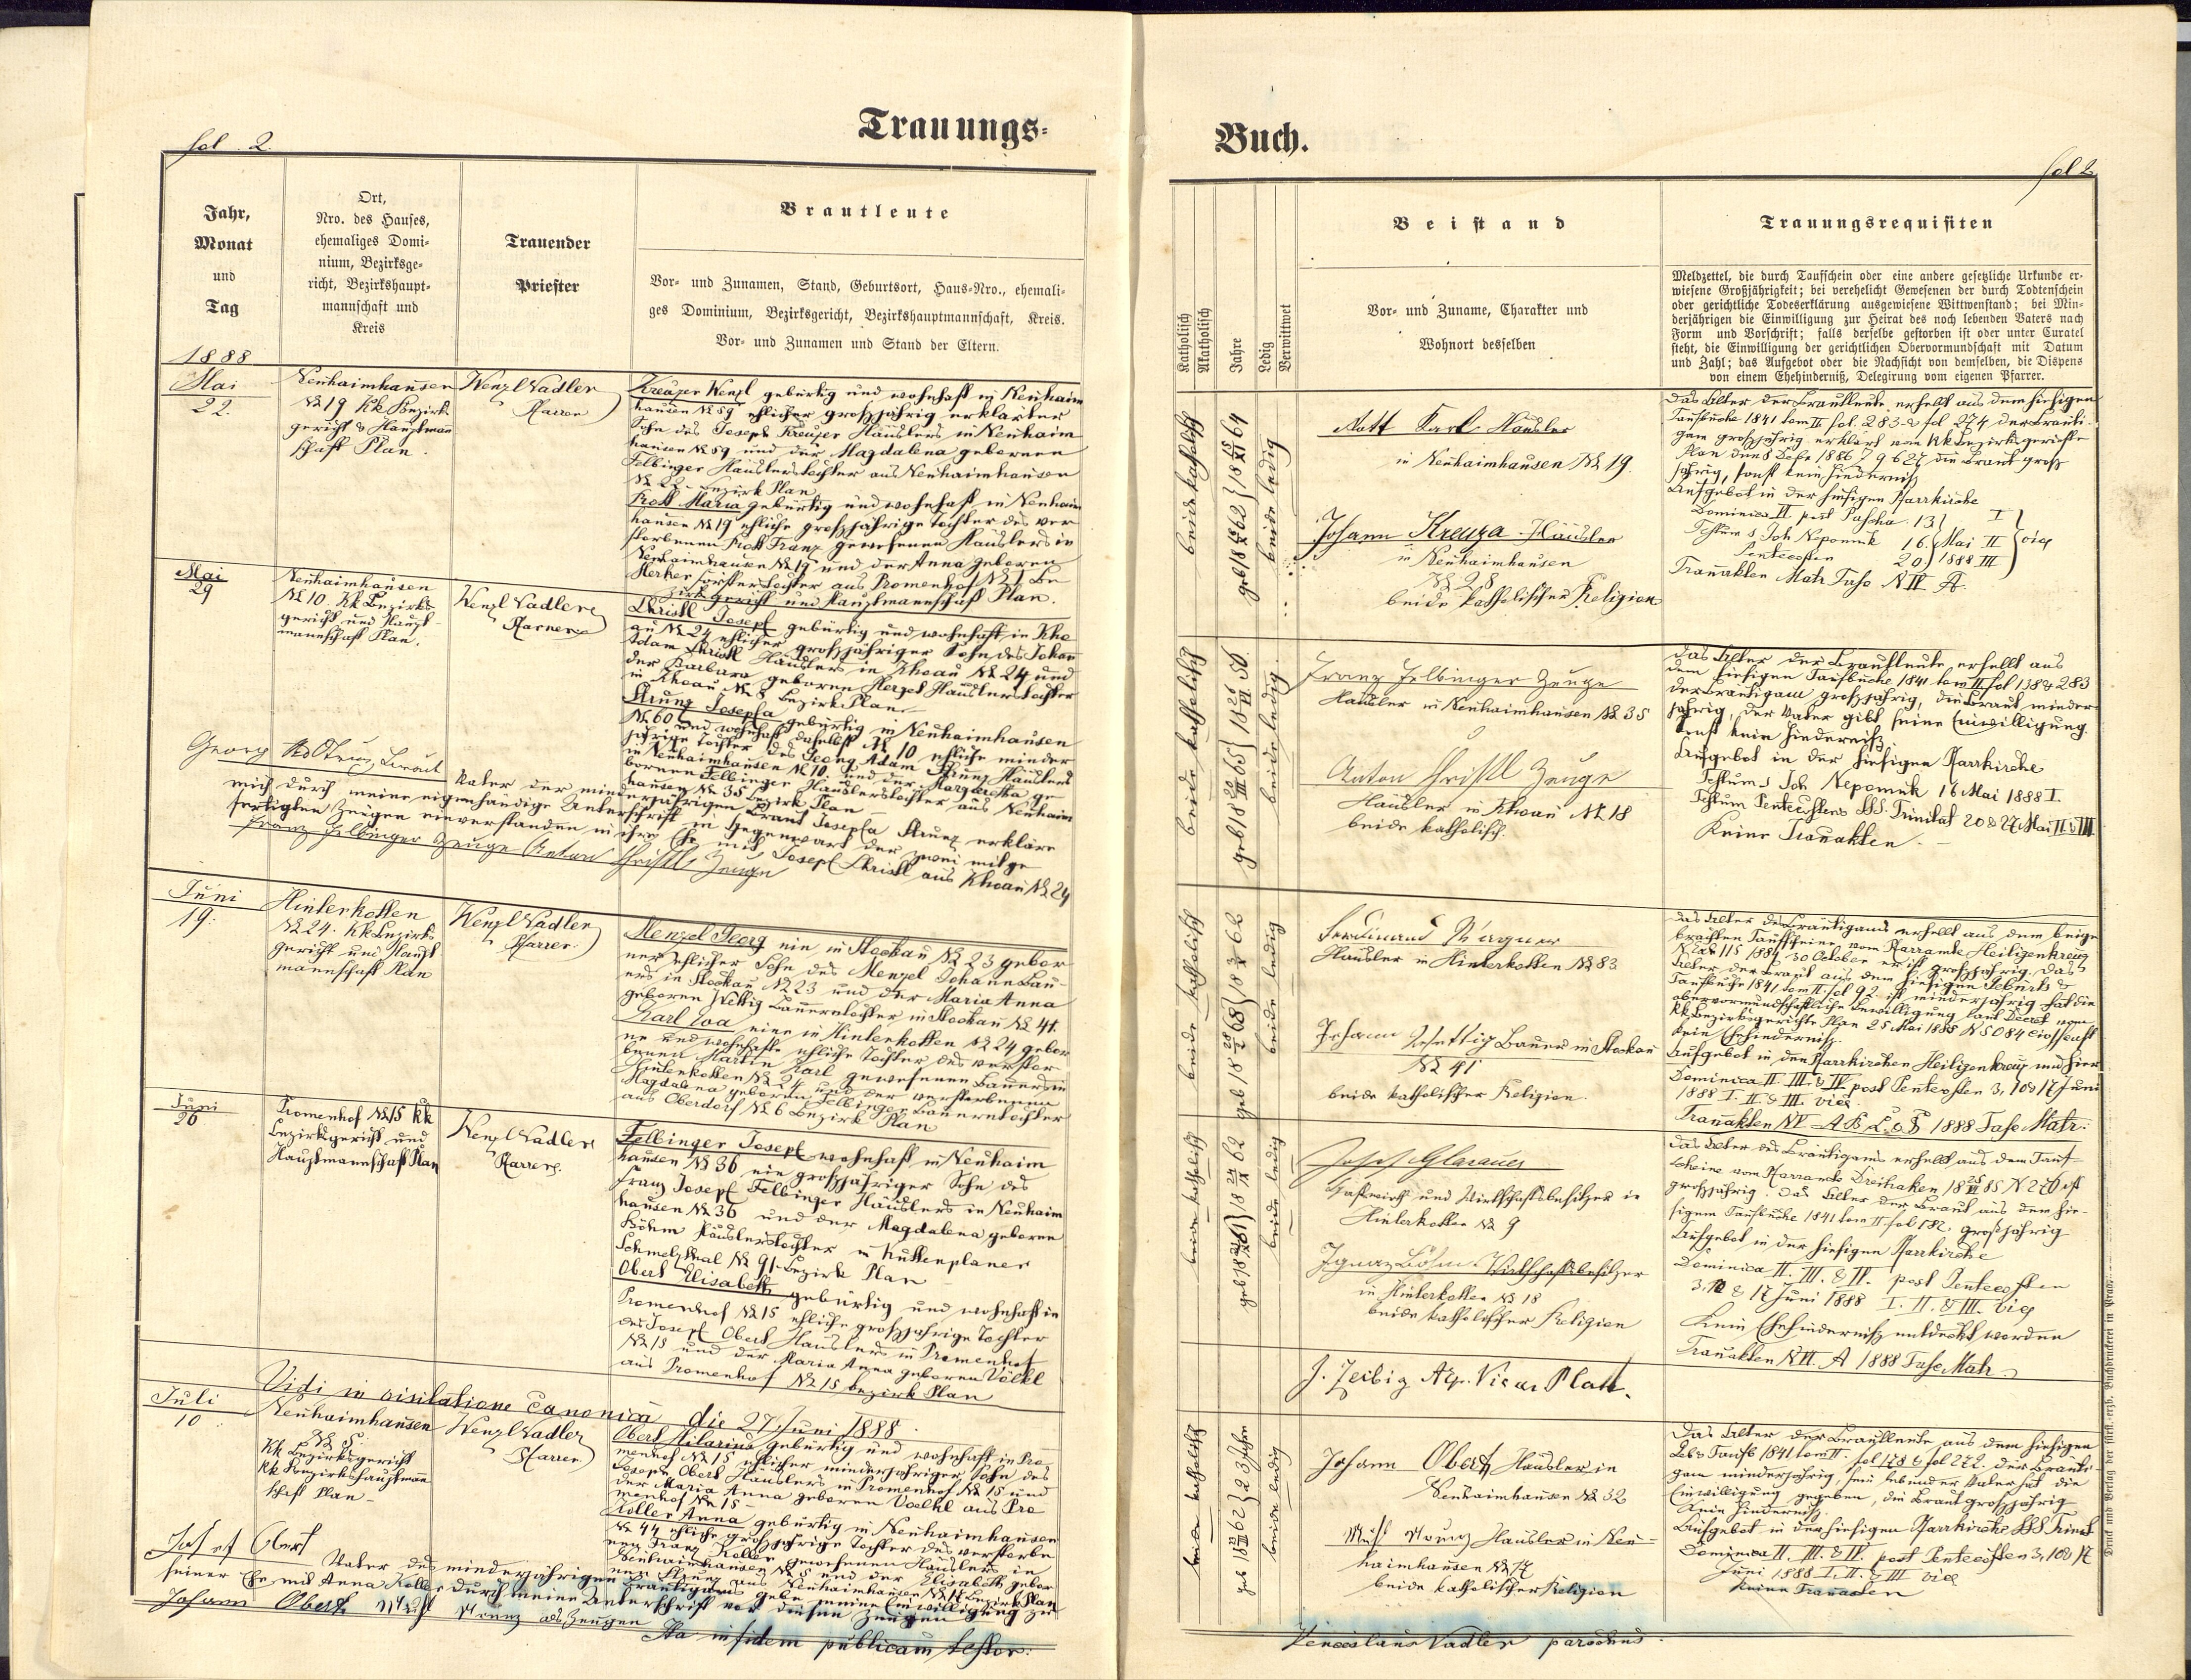 fol. 2.
Trauungs-
Jahr,
Monat
und
Tag
Ort,
Nro. des Hauses,
ehemaliges Domi-
nium, Bezirksge-
richt, Bezirkshaupt-
mannschaft und
Kreis
Trauender
Priester
Brautleute
Vor- und Zunamen, Stand, Geburtsort, Haus-Nro., ehemali-
ges Dominium, Bezirksgericht, Bezirkshauptmannschaft, Kreis.
Vor- und Zunamen und Stand der Eltern.
1888
Mai
22.
Neuhaimhausen
№ 19 kk Bezirks
gericht & Hauptmann
schaft Plan.
Wenzl Nadler
Pfarrer
Kreuzer Wenzl gebürtig und wohnhaft in Neuhaim
hausen № 59 ehlicher großjährig erklärter
Sohn des Joseph Kreuzer Häuslers in Neuhaim
hausen № 59 und der Magdalena gebornen
Felbinger Häuslerstochter aus Neuhaimhausen
№ 22 Bezirk Plan
Rott Maria gebürtig und wohnhaft in Neuhaim
hausen № 19 ehliche großjährige Tochter des ver
storbenen Rott Franz gewesenen Häuslers in
Neuhaimhausen № 19 und der Anna geboren
Försterstochter aus Promenhof № 1 Be
zirksgericht und Hauptmannschaft Plan.
Mai
29
Neuhaimhausen
№ 10. kk Bezirks
gericht und Haupt-
mannschaft Plan.
Wenzl Nadler
Pfarrer
Christl Joseph gebürtig und wohnhaft in Kho
au № 24 ehlicher großjähriger Sohn des Johann
Adam Christl Häuslers in Khoau № 24 und
der Barbara geboren Herzel Häuslerstochter
in Khoau № 8 Bezirk Plan
Strunz Josepha gebürtig in Neuhaimhausen
№ 60 und wohnhaft daselbst № 10 ehliche minder
jährige Tochter des Georg Adam Strunz Häuslers
in Neuhaimhausen № 10 und der Margaretha ge
bornen Felbinger Häuslerstochter aus Neuhaim
hausen № 35 Bezirk Plan
Georg Vater der minderjährigen Braut Josepha Strunz erkläre
mich durch meine eigenhändige Unterschrift in Gegenwart der zwei mitge
fertigten Zeugen einverstanden in ihre Ehe mit Joseph Christl aus Khoau № 24
Franz Felbinger Zeuge Anton Christl Zeuge
Juni
19.
Hinterkotten
№ 24. kk Bezirks
gericht und Haupt
mannschaft Plan
Wenzl Nadler
Pfarrer
Menzel Georg ein in Stockau № 23 gebor
ner ehlicher Sohn des Menzel Johann Bau-
ers in Stockau № 23 und der Maria Anna
geboren Wettig Bauerntochter in Stockau № 41.
Karl Eva eine in Hinterkotten № 24 gebor
ne und wohnhafte ehliche Tochter des verstor
benen Martin Karl gewesenen Bauers in
Hinterkotten № 24 und der verstorbenen
Magdalena geboren Felbinger Bauerntochter
aus Oberdorf № 6 Bezirk Plan
Juni
26
Promenhof № 15 kk
Bezirksgericht und
Hauptmannschaft Plan
Wenzl Nadler
Pfarrer
Felbinger Joseph wohnhaft in Neuhaim
hausen № 36 ein großjähriger Sohn des
Franz Joseph Felbinger Häuslers in Neuhaim
hausen № 36 und der Magdalena geboren
Böhm Häuslerstochter in Kuttenplaner
Schmelzthal № 91 Bezirk Plan
Obert Elisabeth gebürtig und wohnhaft in
Promenhof № 15 ehliche großjährige Tochter
des Joseph Obert Häuslers in Promenhof
№ 15 und der Maria Anna geboren Völkl
aus Promenhof № 15 Bezirk Plan
Vidi in visitatione canonica die 27 Juni 1888.
Juli
10
Neuhaimhausen
№ 5
kk Bezirksgericht
kk Bezirkshauptmann
schaft Plan
Wenzl Nadler
Pfarrer
Obert Hilarius gebürtig und wohnhaft in Pro
menhof № 15 ehlicher minderjähriger Sohn des
Joseph Obert Häuslers in Promenhof № 15 und
der Maria Anna geboren Voelkl aus Pro
menhof № 15
Koller Anna gebürtig in Neuhaimhausen
№ 44 ehliche großjährige Tochter des verstorbe
nen Franz Koller gewesenen Häuslers in
Neuhaimhausen № 5 und der Elisabeth gebor
nen Strunz aus Neuhaimhausen № 17 Bezirk Plan
Josef Obert Vater des minderjährigen Bräutigams gebe meine Einwilligung zu
seiner Ehe mit Anna Koller durch meine Unterschrift vor diesen Zeugen
Johann Obert als Zeugen
Ita in fidem publicam testor:
Buch.
fol 2.
Katholisch
Akatholisch
Jahre
Ledig
Verwittwet
Beistand
Vor- und Zuname, Charakter und
Wohnort desselben
Trauungsrequisiten
Meldzettel, die durch Taufschein oder eine andere gesetzliche Urkunde er-
wiesene Großjährigkeit; bei verehelicht Gewesenen der durch Todtenschein
oder gerichtliche Todeserklärung ausgewiesene Wittwenstand; bei Min-
derjährigen die Einwilligung zur Heirat des noch lebenden Vaters nach
Form und Vorschrift; falls derselbe gestorben ist oder unter Curatel
steht, die Einwilligung der gerichtlichen Obervormundschaft mit Datum
und Zahl; das Aufgebot oder die Nachsicht von demselben, die Dispens
von einem Ehehinderniß, Delegirung vom eigenen Pfarrer.
beide katholisch
beide ledig
Rott Karl Häusler
in Neuhaimhausen № 19.
Johann Kreuza Häusler
in Neuhaimhausen
№ 28
beide katholischer Religion
Das Alter der Brautleute erhellt aus dem hiesigen
Taufbuche 1841 tom II fol. 283 & fol 274 der Bräuti-
gam großjährig erklärt vom kk Bezirksgerichte
Plan 1886 die Braut groß
jährig, sonst kein Hinderniß
Aufgebot in der hiesigen Pfarrkirche
Dominica II post Pascha 13 I
Festum S Joh Nepomuk 16. Mai II
Pentecosten 20 1888 III
Trauakten Matr N IV A.
beide katholisch
beide ledig
Franz Felbinger Zeuge
Häusler in Neuhaimhausen № 35
Anton Christl Zeuge
Häusler in Khoau № 18
beide katholisch.
Das Alter der Brautleute erhellt aus
dem hiesigen Taufbuche 1841 tom II fol 138 & 283
der Bräutigam großjährig, die Braut minder
jährig, der Vater gibt seine Einwilligung.
sonst kein Hinderniß.
Aufgebot in der hiesigen Pfarrkirche
Festum S Joh Nepomuk 16 Mai 1888 I.
Festum Pentecosten SSS. Trinitat 20 & 27 Mai II & III.
Keine Trauakten.
beide katholisch
beide ledig
Ferdinand Wagner
Häusler in Hinterkotten № 83
Johann Wettig Bauer in Stockau
№ 41
beide katholischer Religion.
Das Alter des Bräutigams erhellt aus dem beige
brachten Taufscheine vom Pfarramte Heiligenkreuz
30 October er ist großjährig. Das
Alter der Braut aus dem hiesigen Geburts &
Taufbuche 1841 tom II fol 92 ist minderjährig hat die
obervormundschaftliche Bewilligung laut Decret vom
kk Bezirksgerichte Plan 25 Mai 1888 N 5084
kein Ehehinderniß.
Aufgebot in den Pfarrkirchen Heiligenkreuz und hier
Dominica II. III. & IV post Pentecosten 3, 10 & 17 Juni
1888 I. II. & III.
Trauakten N V A B C & D 1888 Matr.
beide katholisch
beide ledig
Josef Glasauer
Gastwirth und Wirthschaftsbesitzer in
Hinterkotten № 9
Ignaz Böhm Wirthschaftsbesitzer
in Hinterkotten № 18
beide katholischer Religion
Das Alter des Bräutigams erhellt aus dem Tauf-
scheine vom Pfarramte Dreihaken N 270 ist
großjährig. Das Alter der Braut aus dem hie-
sigen Taufbuche 1841 tom II fol 182 großjährig
Aufgebot in der hiesigen Pfarrkirche
Dominica II. III. & IV. post Pentecosten
3, 10 & 17 Juni 1888 I. II. & III.
Kein Ehehinderniß entdeckt worden
Trauakten N VI. A 1888 Matr
beide katholisch
23 Jahre
beide ledig
Johann Obert Häusler in
Neuhaimhausen № 32
Häusler in Neu-
haimhausen № 17
beide katholischer Religion
Das Alter der Brautleute aus dem hiesigen
Geb & Taufb 1841 tom II. fol 178 & fol 272. der Bräuti-
gam minderjährig sein lebender Vater hat die
Einwilligung gegeben, die Braut großjährig
Kein Hinderniß.
Aufgebot in der hiesigen Pfarrkirche SSS Trinit
Dominica II. III. & IV. post Pentecosten 3, 10 & 17
Juni 1888 I. II. & III
Keine Trauakten
Wenceslaus Nadler parochus.
Druck und Verlag der fürst.-erzb. Buchdruckerei in Prag.